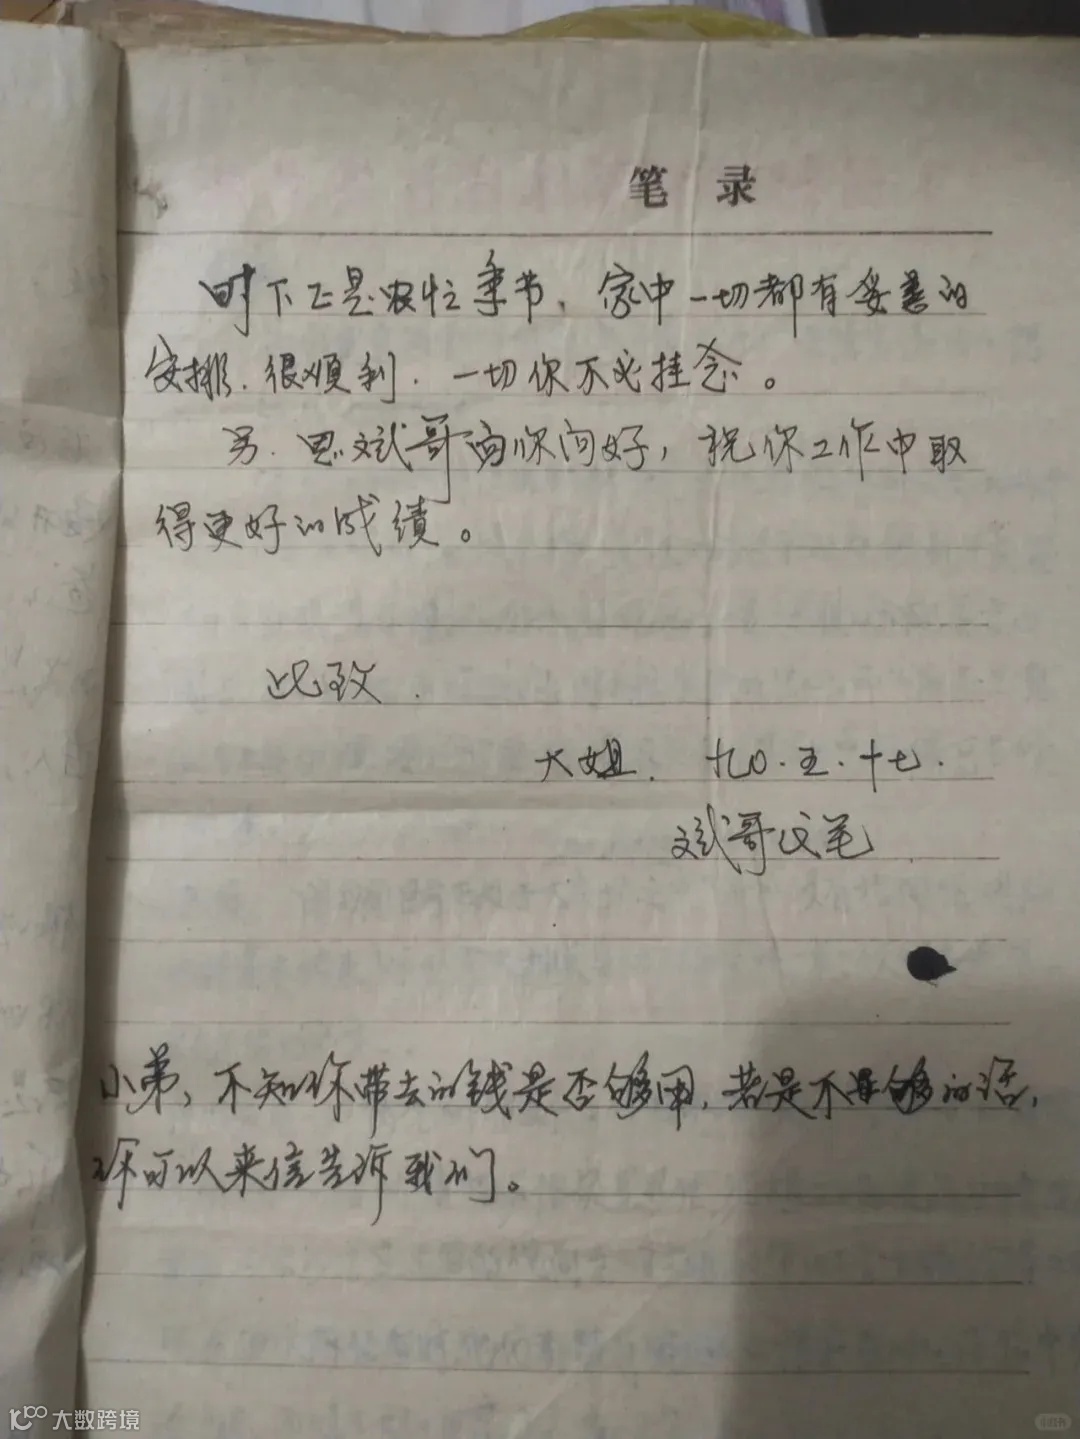 笔 录
时下正是农忙季节，家中一切都有妥善的
安排，很顺利，一切你不必挂念。
另，思斌哥向你问好，祝你工作中取
得更好的成绩。
此致
大姐 九〇.五.十七.
斌哥代笔
小弟，不知你带去的钱是否够用，若是不够的话，
你可以来信告诉我们。
大数跨境
小红书